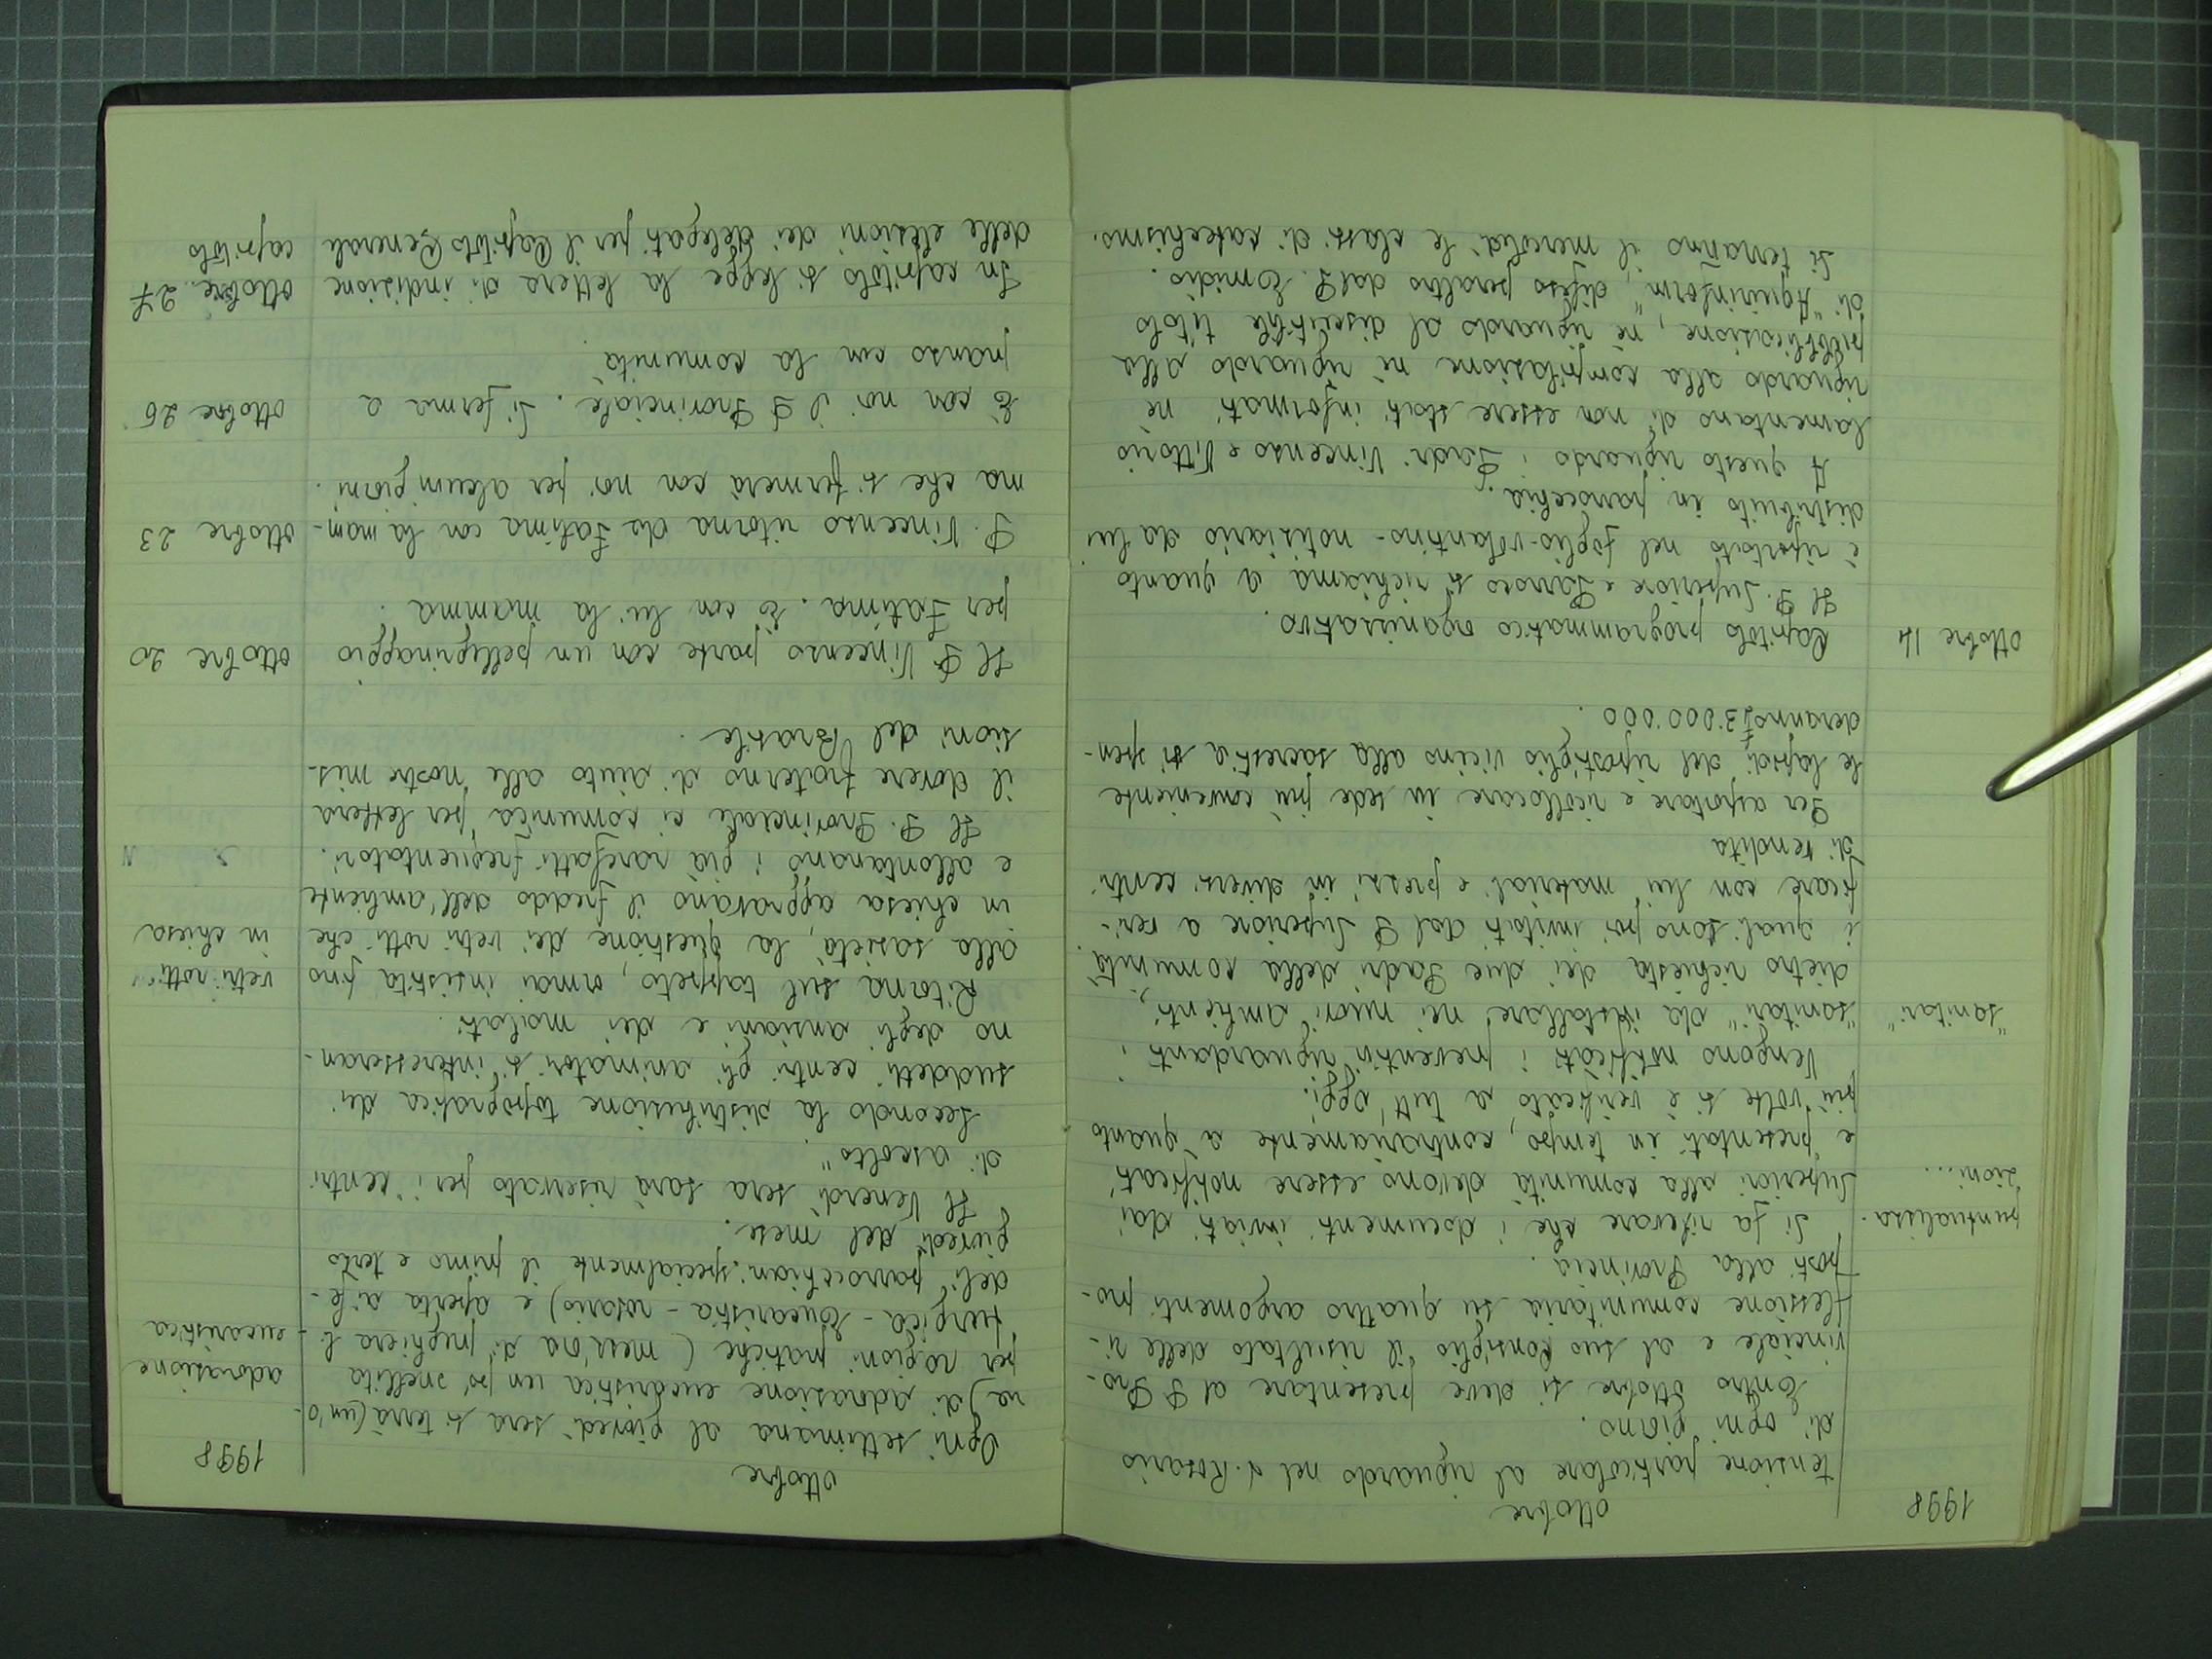 1998
ottobre
tensione particolare al riguardo nel S. Rosario
di ogni giorno.
Entro ottobre si deve presentare al P Pro-
vinciale e al suo Consiglio il risultato della ri-
flessione comunitaria su quattro argomenti pro-
posti alla Provincia.
puntualizza-
zioni...
Si fa rilevare che i documenti inviati dai
Superiori alla comunità devono essere notificati
e presentati in tempo, contrariamente a quanto
più volte si è verificato a tutt'oggi.
Vengono notificati i preventivi riguardanti i
"sanitari"
"sanitari" da installare nei nuovi ambienti,
dietro richiesta dei due Padri della comunità,
i quali sono poi invitati dal P Superiore a veri-
ficare con lui materiali e prezzi in diversi centri
di vendita
Per asportare e ricollocare in sede più conveniente
le lapidi del ripostiglio vicino alla sacrestia si spen-
deranno £ 3.000.000.
ottobre 14
Capitolo programmatico organizzativo.
Il P. Superiore e Parroco si richiama a quanto
è riportato nel foglio-volantino-notiziario da lui
distribuito in parrocchia.
A questo riguardo i Padri Vincenzo e Vittorio
lamentano di non essere stati informati nè
riguardo alla compilazione nè riguardo alla
pubblicazione, nè riguardo al discutibile titolo
di "Aquininform", difeso peraltro dal P. Emidio.
Si terranno il mercoldì le classi di catechismo.
ottobre
1998
Ogni settimana al giovedì sera si terrà (un'o-
ra) di adorazione eucaristica un pò snellita
adorazione
eucaristica
per ragioni pratiche (mezz'ora di preghiera li-
turgica - Eucaristia - rosario) e aperta ai fe-
deli parrocchiani specialmente il primo e terzo
giovedì del mese.
Il Venerdì sera sarà riservato per i "centri
di ascolto".
Secondo la distribuzione topografica dei
suddetti centri gli animatori si interesseran-
no degli anziani e dei malati.
Ritorna sul tappeto, ormai insistita fino
vetri rotti
in chiesa
alla sazietà, la questione dei vetri rotti che
in chiesa aggravano il freddo dell'ambiente
e allontanano i già rarefatti frequentatori.
Il P. Provinciale ci comunica per lettera
il dovere fraterno di aiuto alle nostre mis-
sioni del Brasile.
Il P Vincenzo parte con un pellegrinaggio
ottobre 20
per Fatima. È con lui la mamma.
P. Vincenzo ritorna da Fatima con la mam-
ottobre 23
ma che si fermerà con noi per alcuni giorni.
È con noi il P Provinciale. Si ferma a
ottobre 26
pranzo con la comunità
In capitolo si legge la lettera di indizione
ottobre 27
capitolo
delle elezioni dei delegati per il Capitolo Generale